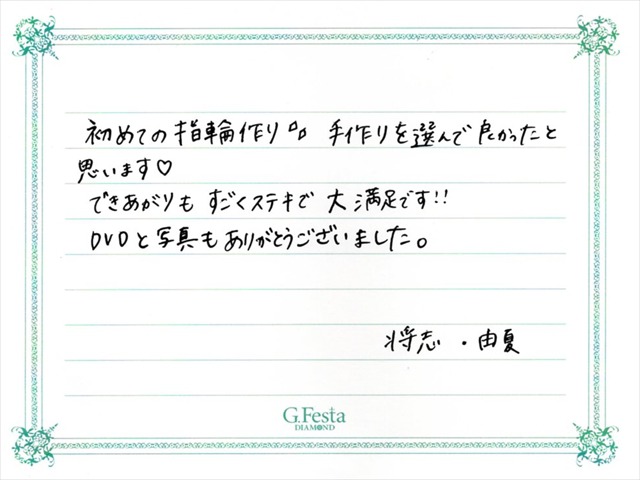 初めての指輪作り♪♪ 手作りを選んで良かったと
思います♡
できあがりも すごくステキで 大満足です!!
DVDと写真もありがとうございました。
将志・由夏
G.Festa
DIAMOND